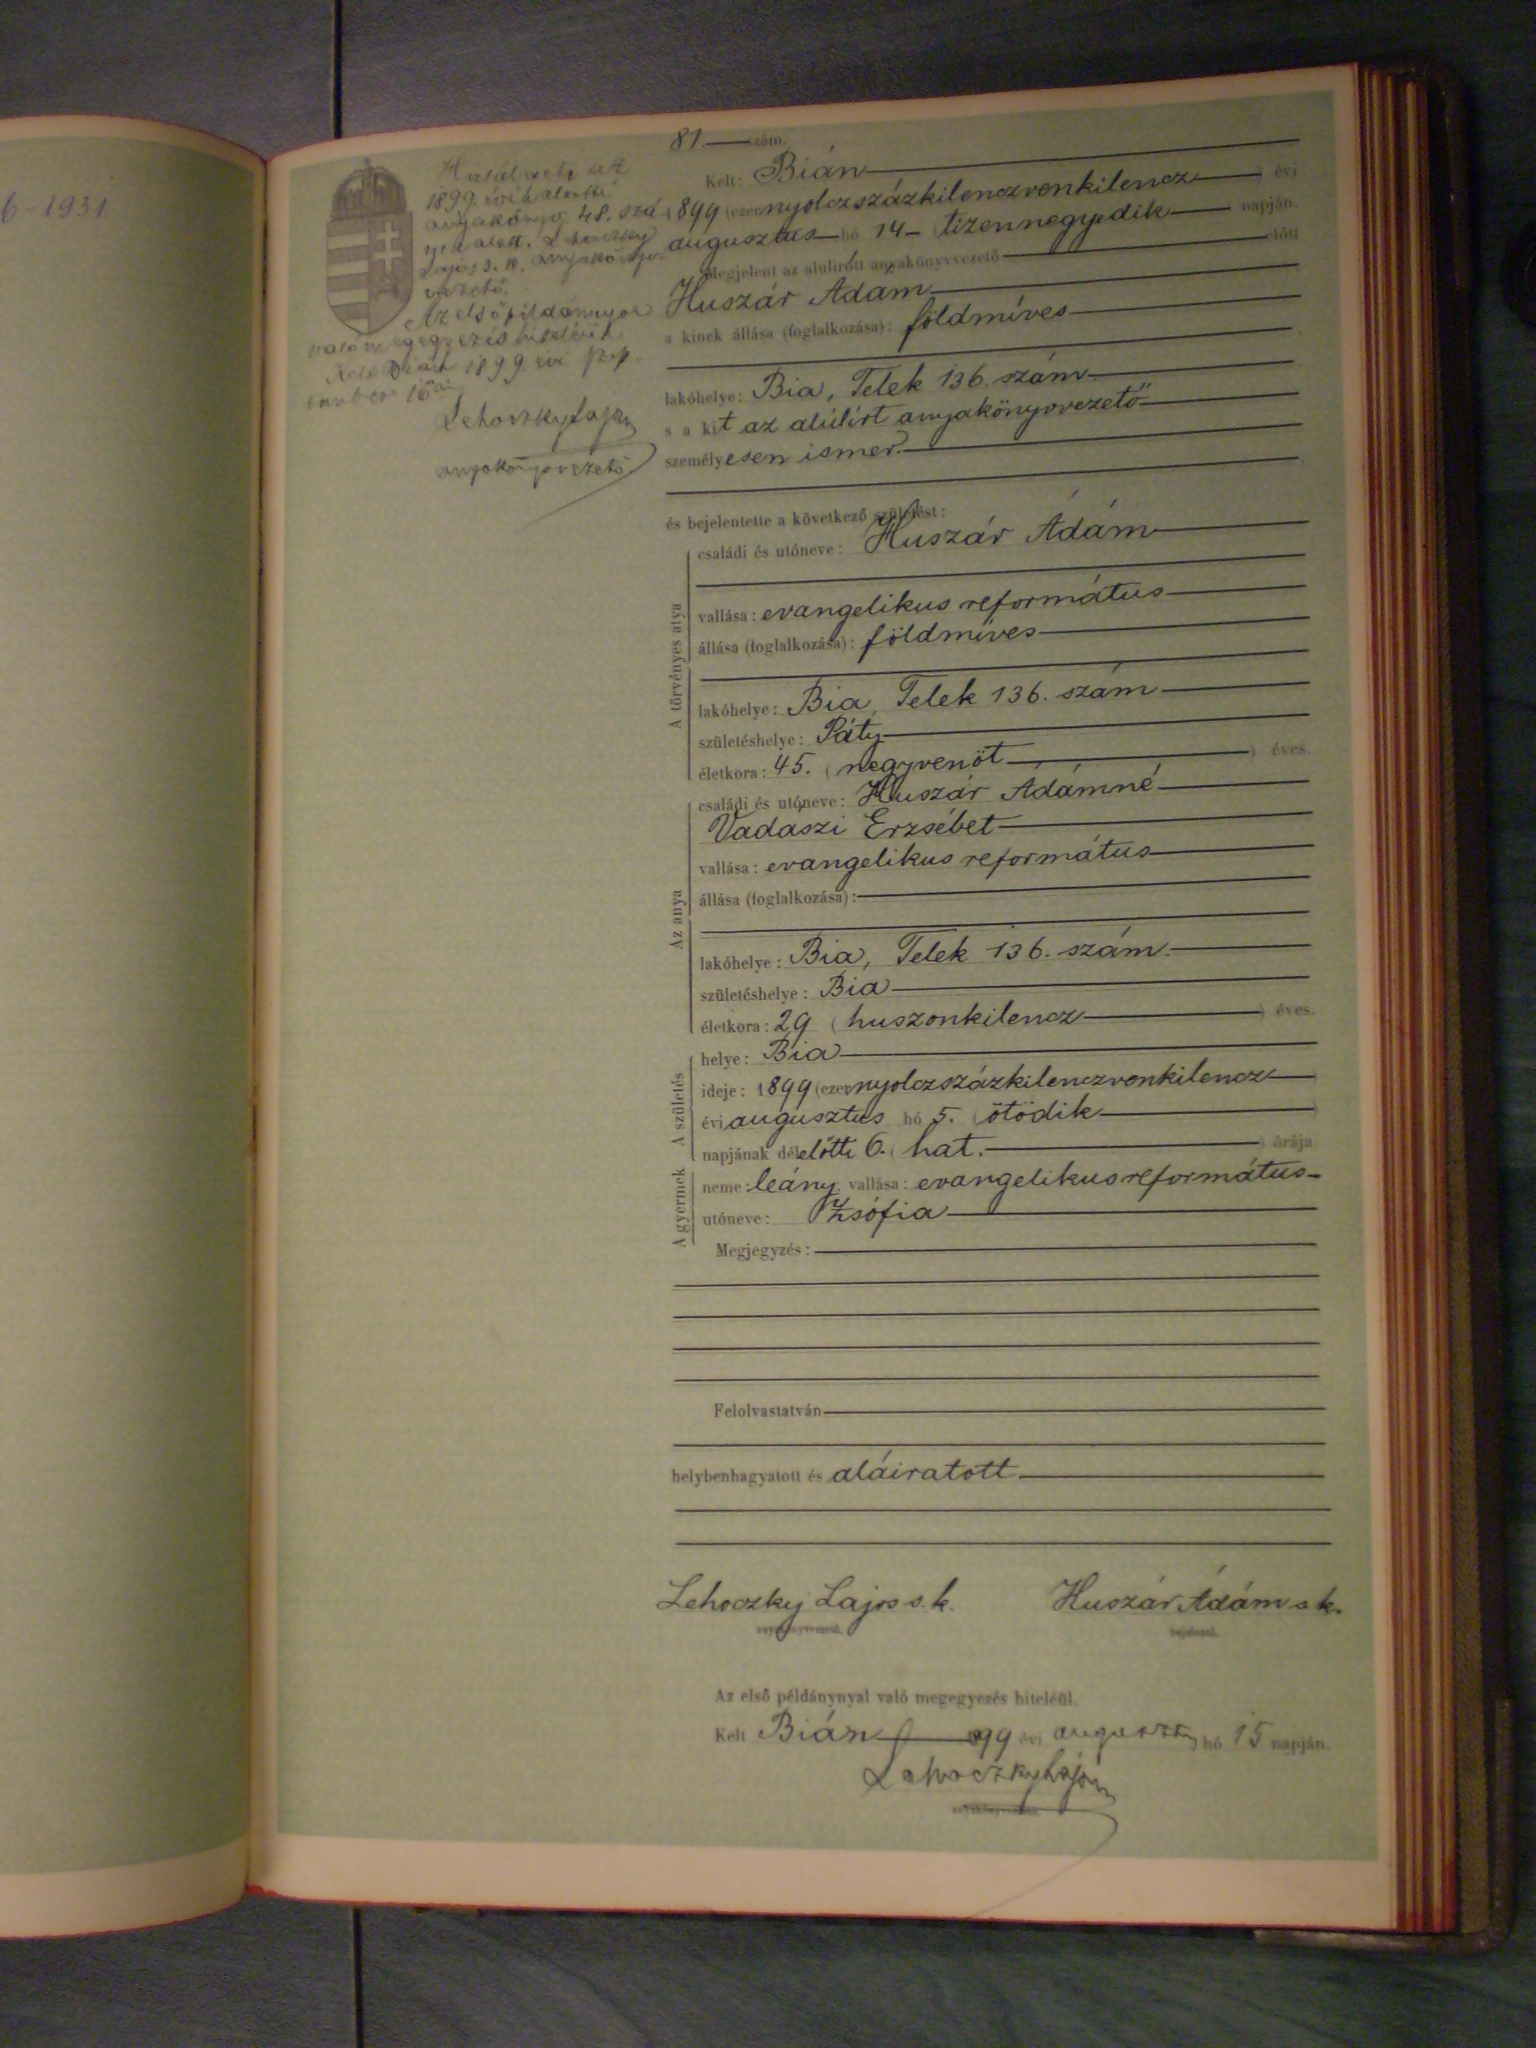 6-1931
81. szám.
Halálesete az
1899. évi halotti
anyakönyv 48. szá-
ma alatt. Lehoczky
Lajos s. k. anyakönyv-
vezető.
Az első példánynyal
való megegyezés hiteléül
Kelt Bián 1899 évi szep-
tember 16án
Lehoczky Lajos
anyakönyvvezető
Kelt: Bián
1899 (ezernyolczszázkilenczvenkilencz) évi
augusztus hó 14 (tizennegyedik) napján.
Megjelent az alulirott anyakönyvvezető előtt
Huszár Ádám
a kinek állása (foglalkozása): földmíves
lakóhelye: Bia, Telek 136. szám
s a kit az alúlírt anyakönyvvezető
személyesen ismer.
és bejelentette a következő születést:
A törvényes atya
családi és utóneve: Huszár Ádám
vallása: evangelikus református
állása (foglalkozása): földmíves
lakóhelye: Bia, Telek 136. szám
születéshelye: Páty
életkora: 45. (negyvenöt) éves.
Az anya
családi és utóneve: Huszár Ádámné
Vadászi Erzsébet
vallása: evangelikus református
állása (foglalkozása):
lakóhelye: Bia, Telek 136. szám.
születéshelye: Bia
életkora: 29 (huszonkilencz) éves.
A születés
helye: Bia
ideje: 1899 (ezernyolczszázkilenczvenkilencz)
évi augusztus hó 5. (ötödik)
napjának délelőtti 6. (hat.) órája
A gyermek
neme: leány vallása: evangelikus református
utóneve: Zsófia
Megjegyzés:
Felolvastatván
helybenhagyatott és aláiratott
Lehoczky Lajos s. k. Huszár Ádám s k.
anyakönyvvezető. bejelentő.
Az első példánynyal való megegyezés hiteléül.
Kelt Bián 899 évi augusztus hó 15 napján.
Lehoczky Lajos
anyakönyvvezető.